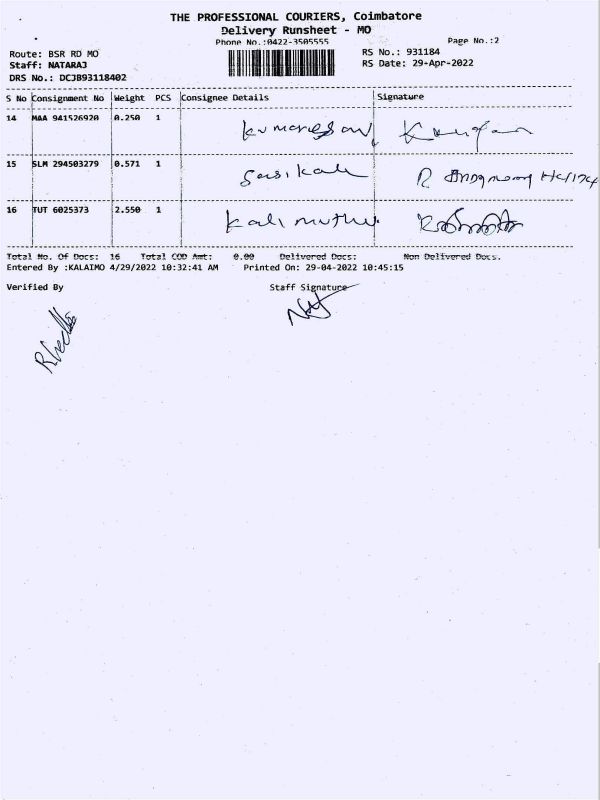 THE PROFESSIONAL COURIERS, Coimbatore
Delivery Runsheet - MO
Phone No.:0422-3505555
Page No.:2
Route: BSR RD MO
RS No.: 931184
Staff: NATARAJ
RS Date: 29-Apr-2022
DRS No.: DCJB93118402
S No Consignment No Weight PCS Consignee Details Signature
14 MAA 941526920 0.250 1
15 SLM 294503279 0.571 1 Sasikala
16 TUT 6025373 2.550 1 Kalimuthu
Total No. Of Docs: 16 Total COD Amt: 0.00 Delivered Docs: Non Delivered Docs.
Entered By :KALAIMO 4/29/2022 10:32:41 AM Printed On: 29-04-2022 10:45:15
Verified By Staff Signature